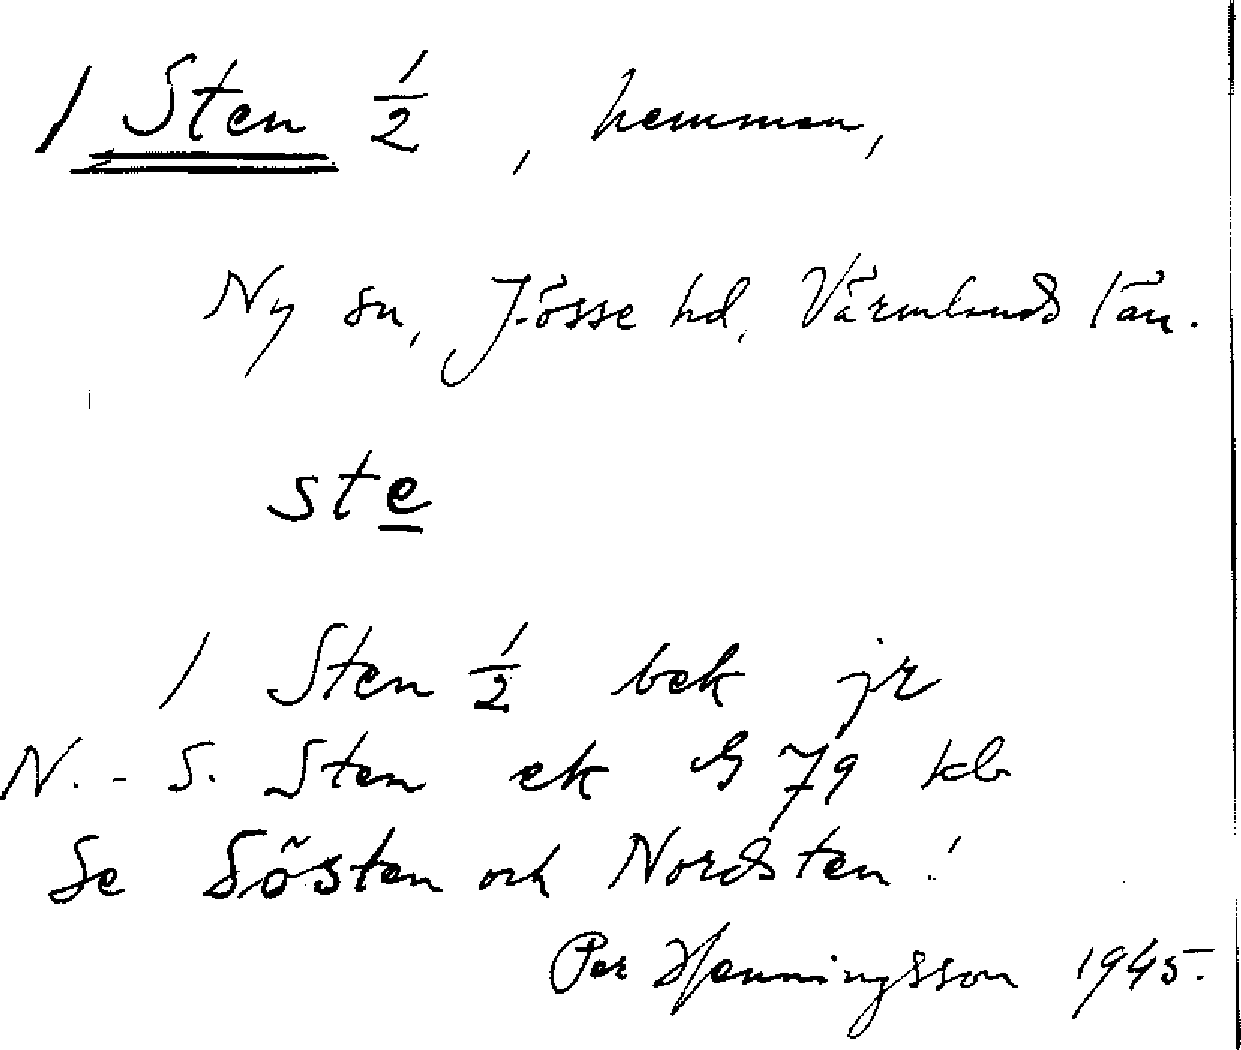 1 Sten 1/2, hemman,
Ny sn, Jösse hd, Värmlands län.
ste
1 Sten 1/2 bek jr
N.-S. Sten ek G 79 kb
Se Sösten och Nordsten!
Per Henningsson 1945.